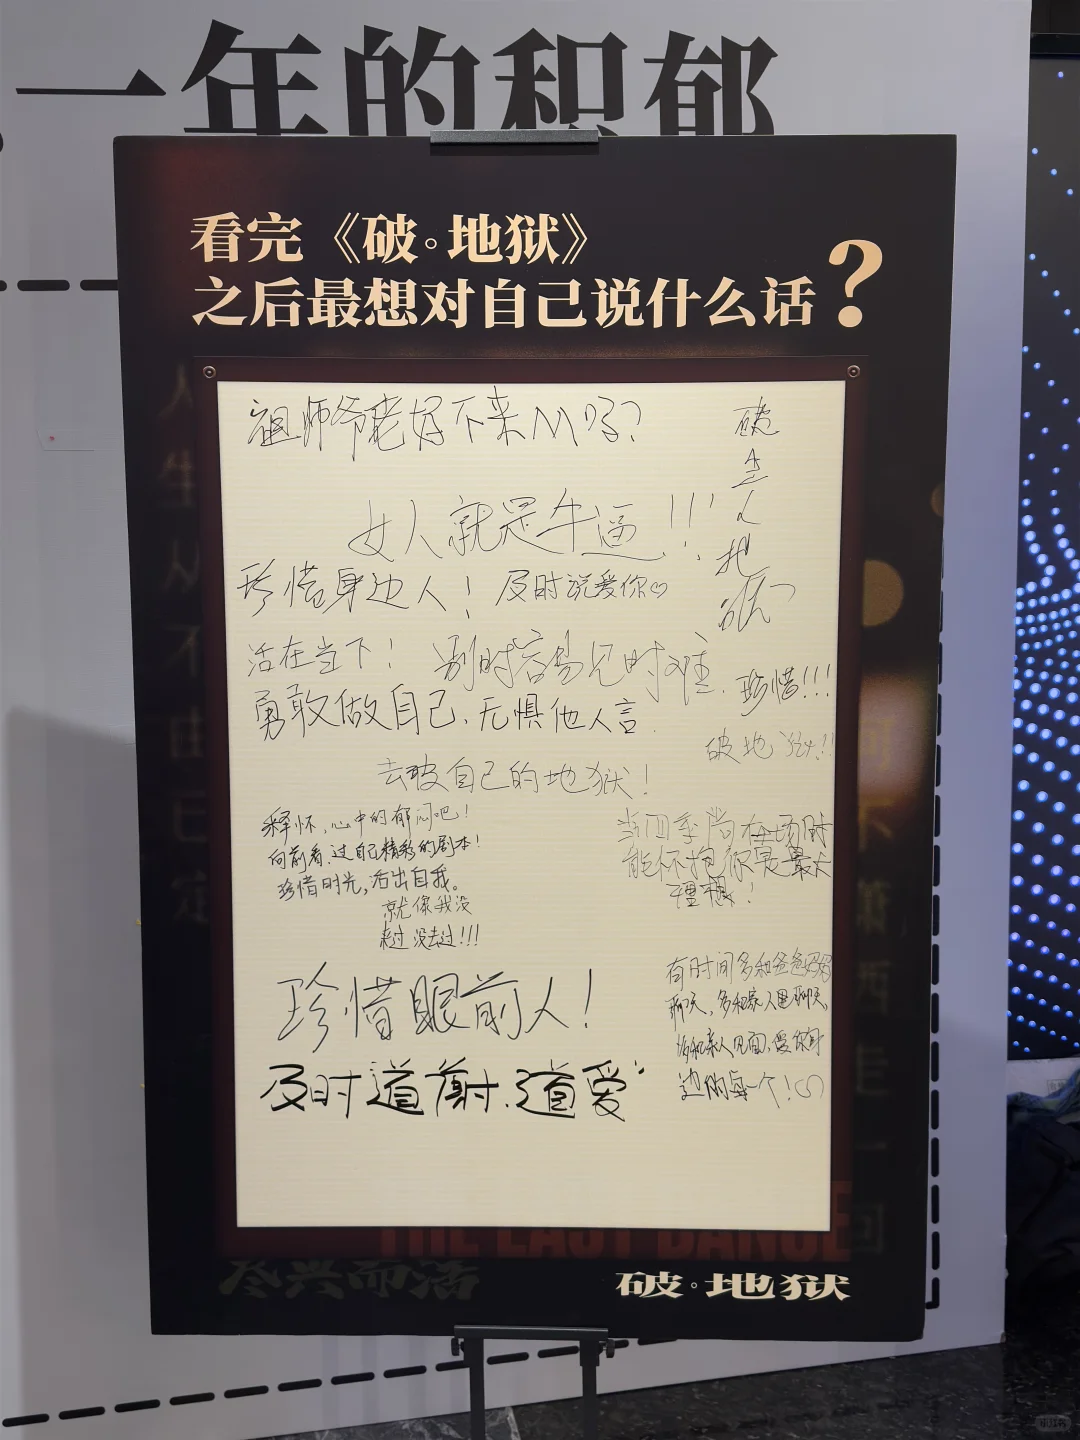 一年的积郁
看完《破·地狱》
之后最想对自己说什么话？
祖师爷老好下来M吗？
破
生
人
地
狱
女人就是牛逼!!!
珍惜身边人！ 及时说爱你♡
活在当下！ 别时容易见时难. 珍惜!!!
勇敢做自己、无惧他人言.
破地狱!!
去破自己的地狱！
释怀、心中的郁闷吧！
向前看，过自己精彩的剧本！
珍惜时光，活出自我。
就像我没
来过 没去过!!!
当四季尚在场时
能怀抱你是最大
理想！
珍惜眼前人！
有时间多和爸爸妈妈
聊天，多和家人聊天
多和亲人见面、爱你身
边的每一个！♡
及时道谢、道爱
THE LAST DANCE
尽兴而活
破·地狱